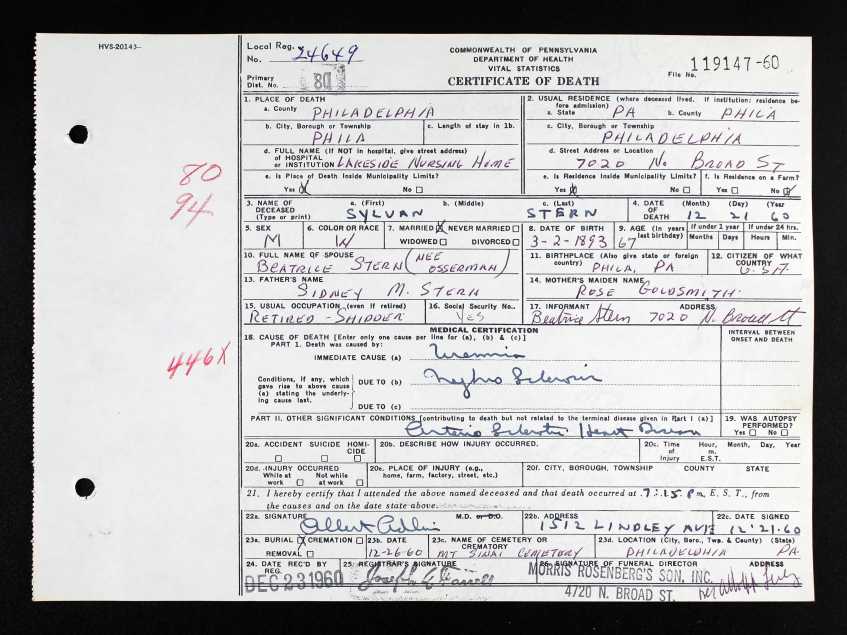 HVS-20143-
Local Reg. No. 24649
COMMONWEALTH OF PENNSYLVANIA
DEPARTMENT OF HEALTH
VITAL STATISTICS
CERTIFICATE OF DEATH
File No. 119147-60
Primary Dist. No. 80
1. PLACE OF DEATH
a. County PHILADELPHIA
b. City, Borough or Township PHILA
c. Length of stay in 1b.
d. FULL NAME (If NOT in hospital, give street address) of HOSPITAL or INSTITUTION LAKESIDE NURSING HOME
e. Is Place of Death Inside Municipality Limits?
Yes No
2. USUAL RESIDENCE (where deceased lived. If institution: residence before admission)
a. State PA b. County PHILA
c. City, Borough or Township PHILADELPHIA
d. Street Address or Location 7020 No BROAD ST
e. Is Residence Inside Municipality Limits? Yes No
f. Is Residence on a Farm? Yes No
80
94
3. NAME OF DECEASED (Type or print) a. (First) SYLVAN b. (Middle) c. (Last) STERN
4. DATE OF DEATH (Month) (Day) (Year 12 21 60
5. SEX M
6. COLOR OR RACE W
7. MARRIED NEVER MARRIED WIDOWED DIVORCED
8. DATE OF BIRTH 3-2-1893
9. AGE (In years last birthday) 67
If under 1 year Months Days
If under 24 hrs. Hours Min.
10. FULL NAME OF SPOUSE BEATRICE STERN (NEE OSSERMAN)
11. BIRTHPLACE (Also give state or foreign country) PHILA, PA
12. CITIZEN OF WHAT COUNTRY U.S.A.
13. FATHER'S NAME SIDNEY M. STERN
14. MOTHER'S MAIDEN NAME ROSE GOLDSMITH
15. USUAL OCCUPATION (even if retired) RETIRED -
16. Social Security No. YES
17. INFORMANT ADDRESS Beatrice Stern 7020 N. Broad St
MEDICAL CERTIFICATION
INTERVAL BETWEEN ONSET AND DEATH
18. CAUSE OF DEATH [Enter only one cause per line for (a), (b) & (c)]
PART I. Death was caused by:
IMMEDIATE CAUSE (a) Uremia
446X
Conditions, if any, which gave rise to above cause (a) stating the underlying cause last.
DUE TO (b) Nephro Sclerosis
DUE TO (c)
PART II. OTHER SIGNIFICANT CONDITIONS [contributing to death but not related to the terminal disease given in Part I (a)]
Arterio Sclerotic Heart Disease
19. WAS AUTOPSY PERFORMED? Yes No
20a. ACCIDENT SUICIDE HOMICIDE
20b. DESCRIBE HOW INJURY OCCURRED.
20c. Time of Injury Hour, m. E.S.T. Month, Day, Year
20d. INJURY OCCURRED While at work Not while at work
20e. PLACE OF INJURY (e.g., home, farm, factory, street, etc.)
20f. CITY, BOROUGH, TOWNSHIP COUNTY STATE
21. I hereby certify that I attended the above named deceased and that death occurred at 7:15 Pm E. S. T., from the causes and on the date state above.
22a. SIGNATURE Albert M.D. or D.O.
22b. ADDRESS 1512 LINDLEY AVE
22c. DATE SIGNED 12-21-60
23a. BURIAL CREMATION REMOVAL
23b. DATE 12-26-60
23c. NAME OF CEMETERY OR CREMATORY MT SINAI CEMETERY
23d. LOCATION (City, Boro., Twp. & County) (State) PHILADELPHIA PA.
24. DATE REC'D BY REG. DEC 23 1960
25. REGISTRAR'S SIGNATURE Joseph E. Farrell
26. SIGNATURE OF FUNERAL DIRECTOR ADDRESS
MORRIS ROSENBERG'S SON, INC.
4720 N. BROAD ST.